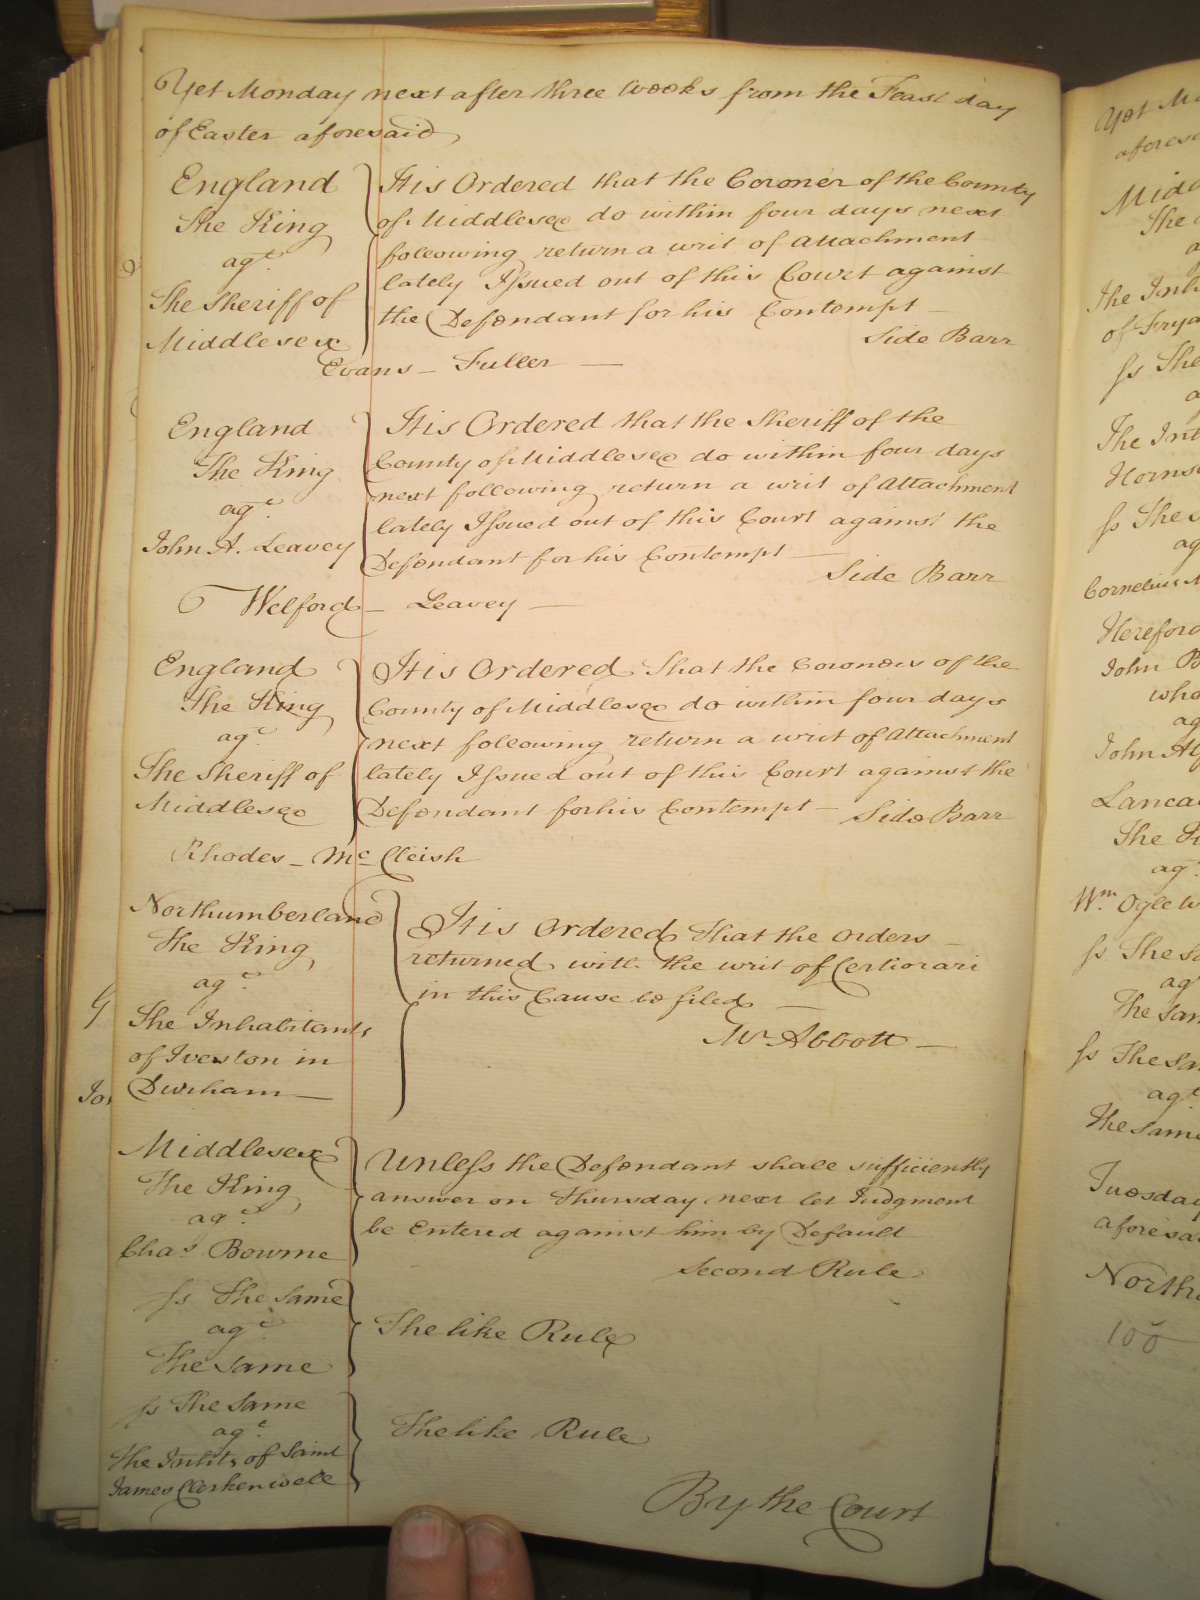 Yet Monday next after three weeks from the Feast day
of Easter aforesaid
England
The King
agt.
The Sheriff of
Middlesex
It is Ordered that the Coroner of the County
of Middlesex do within four days next
following return a writ of Attachment
lately Issued out of this Court against
the Defendant for his Contempt —
Side Barr
Evans — Fuller —
England
The King
agt.
John A. Leavey
It is Ordered that the Sheriff of the
County of Middlesex do within four days
next following return a writ of Attachment
lately Issued out of this Court against the
Defendant for his Contempt —
Side Barr
Welford — Leavey —
England
The King
agt.
The Sheriff of
Middlesex
It is Ordered That the Coroners of the
County of Middlesex do within four days
next following return a writ of Attachment
lately Issued out of this Court against the
Defendant for his Contempt — Side Barr
Rhodes — Mc Cleish
Northumberland
The King
agt.
The Inhabitants
of Iveston in
Durham —
It is Ordered That the Orders —
returned with the writ of Certiorari
in this Cause be filed —
Mr Abbott —
Middlesex
The King
agt.
Chas Bowrne
Unless the Defendant shall sufficiently
answer on Thursday next let Judgment
be Entered against him by Default
Second Rule
Ss The Same
agt.
The Same
The like Rule
Ss The Same
agt.
The Inhts of Saint
James Clerkenwell
The like Rule
By the Court
Yet
Midd
The
The Inh
of Frya
Ss The
The Inh
Horns
Ss The S
ag
Cornelius
Hereford
John
who
agt
John
Lanca
The
agt.
Wm. Ogle
Ss The Sa
agt
The Sam
Ss The Sa
agt
The Same
Tuesday
aforesa
North
100